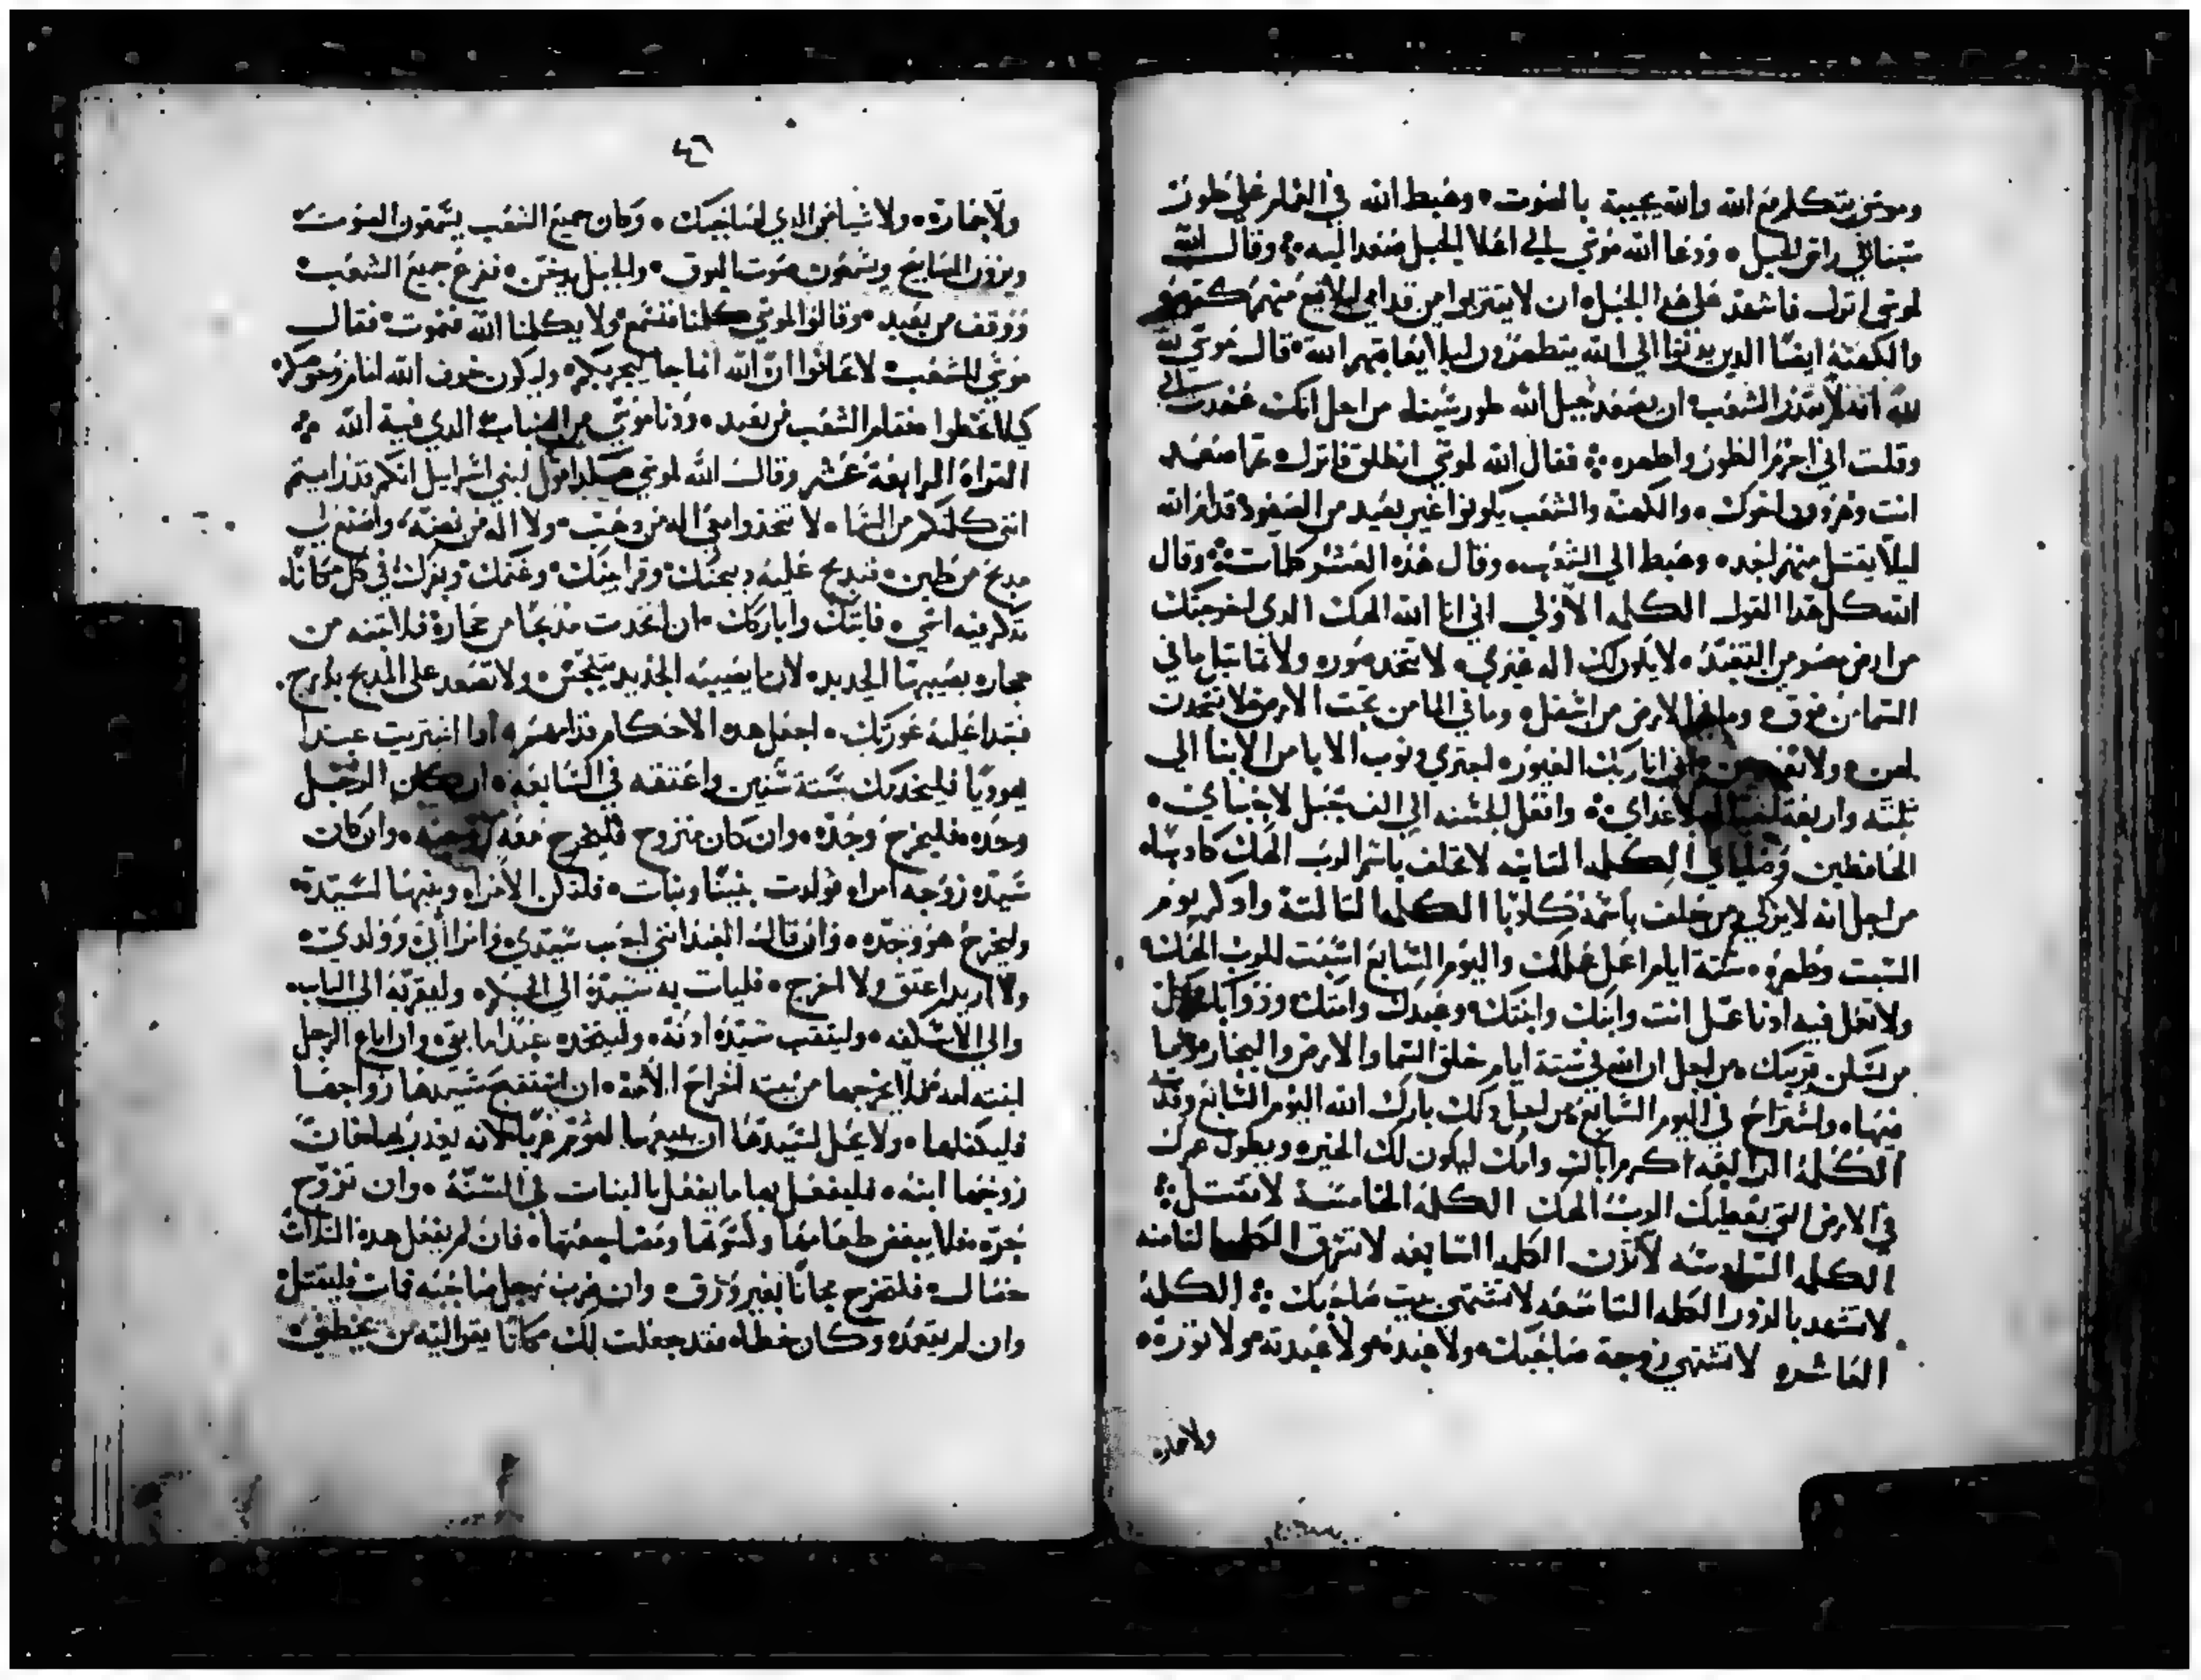 وموسى يتكلم مع الله والله يجيبه بالصوت • وهبط الله في الغمام على طور
سينا في راس الجبل • ودعا الله موسى الي اعلا الجبل فصعد اليه • وقال الله
لموسى انزل فاشهد على هدا الجبل ان لا يقتربوا من قدامي ليلا يقع منهم كتير
والكهنه ايضا الدين يدنوا الي الله يتطهرون ليلا يعاقبهم الله • قال موسى لله
لله انه لا يقدر الشعب ان يصعد جبل الله طور سينا • من اجل انك عهدت الي
وقلت اني احرم الطور واطهره • فقال الله لموسى انطلق فانزل تم اصعد
انت وهرون اخوك • والكهنة والشعب يكونوا غير بعيد من الصعود قدام الله
ليلا يقتل منهم احد • وهبط الي الشعب • وقال هذه العشر كلمات • وقال
الله كل هدا القول الكلمه الاولي اني انا الله الهك الدي اخرجتك
من ارض مصر من التعبد • لا يكون لك اله غيري • لا تتخد صوره ولا تماتيل ما في
السما من فوق • وما في الارض من اسفل • وما في الما من تحت الارض لا تسجدن
لهن • ولا تعبدهن • اني انا ربك الغيور • اجتزي دنوب الابا من الابنا الي
تلته واربعة لاعداي • وافعل الحسنه الي الف جيل لاحبايي •
الحافظين وصاياي الكلمه التانيه لا تحلف باسم الرب الهك كادبا •
من اجل انه لا يزكي من حلف باسمه كادبا الكلمه التالتة وادكر يوم
السبت وطهره • ستة ايام اعمل عملك واليوم السابع اسبت للرب الهك •
ولا تعمل فيه ادنا عمل انت وابنك وابنتك • وعبدك وامتك • ودوابك وكل
من يسكن قريتك • من اجل ان الله في ستة ايام خلق السما والارض والبحار وما
فيها • واستراح في اليوم السابع من اجل دلك بارك الله اليوم السابع وقدسه
الكلمه الرابعه اكرم اباك وامك ليكون لك الخير • ويطول عمرك
في الارض التي يعطيك الرب الهك الكلمه الخامسة لا تقتل •
الكلمه السادسه لا تزن الكلمه السابعه لا تسرق الكلمه التامنه
لا تشهد بالزور الكلمه التاسعه لا تشتهي بيت صاحبك • الكلمة
العاشره لا تشتهي زوجة صاحبك • ولا عبده • ولا عبدته • ولا توره •
ولا حماره
٤٦
ولا حماره • ولا شيا من الدي لصاحبك • وكان جميع الشعب يسمعون الصوت
ويرون المصابيح ويسمعون صوت البوق • والجبل يدخن • ففزع جميع الشعب •
ووقف من بعيد • وقالوا لموسى كلمنا فنسمع • ولا يكلمنا الله فنموت • فقال
موسى للشعب • لا تخافوا ان الله انما جا ليجربكم • وليكون خوف الله امام وجوهكم •
كيلا تخطوا • فقام الشعب من بعيد • ودنا موسى من الضباب الدي فيه الله •
القراة الرابعة عشر وقال الله لموسى هكدا قول لبني اسراييل انكم قد رايتم
انني كلمتكم من السما • لا تتخذوا معي اله من دهب • ولا اله من فضة • واصنع لي
مدبح من طين • فتدبح عليه دبيحتك • وقرابينك • وغنمك • وبقرك في كل مكان
تدكر فيه اسمي • فاتيك واباركك • ان اتخدت مدبحا من حجارة فلا تبنه من
حجاره يصيبها الحديد • لان ما يصيبه الحديد يتنجس • ولا تصعد على المدبح بدرج •
فتبدا عليه عورتك • اجعل هده الاحكام قدامهم • ادا اشتريت عبدا
يهوديا فليخدمك ستة سنين واعتقه في السابعه • ان كان الرجل
وحده • فليخرج وحده • وان كان متزوج فليخرج معه زوجته • وان كان
سيده زوجه امراه فولدت بنينا وبنات • فلتكن الامراه وبنيها لسيده •
وليخرج هو وحده • وان قال العبد انني احب سيدي وامراتي وولدي •
ولا اريد اعتق ولا اخرج • فليات به سيده الي الحكام • وليقربه الي الباب •
والي الاسكفه • وليتقب سيده ادنه • وليتخده عبدا ما بقي • وان اباع الرجل
ابنته امه فلا يخرجها من بيته اخراج الامة • ان استقبح سيدها زواجها
فليكفلها • ولا يحل لسيدها ان يبيعها لقوم غربا • لانه يغدر بها • فان
زوجها ابنه • فليفعل بها ما يفعل بالبنات في السنة • وان تزوج
حرة • فلا يبغض طعامها وكسوتها ومضاجعتها • فان لم يفعل هدة التلات
خصال • فلتخرج مجانا بغير ورق • وان ضرب رجل صاحبه فمات فليقتل •
وان لم يتعمده وكان خطا • فقد جعلت لك مكانا يفر اليه من يخطي •